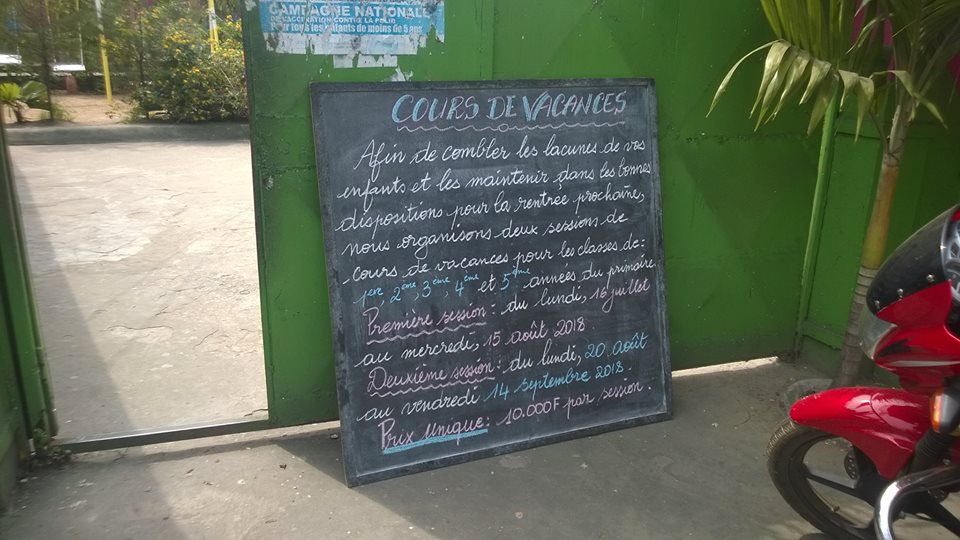 CAMPAGNE NATIONALE
DE VACCINATION CONTRE LA POLIO
Pour tous les enfants de moins de 5 ans
COURS DE VACANCES
Afin de combler les lacunes de vos
enfants et les maintenir dans les bonnes
dispositions pour la rentrée prochaîne,
nous organisons deux sessions de
cours de vacances pour les classes de:
1ère, 2ème, 3ème, 4ème et 5ème années du primaire
Première session: du lundi, 16 juillet
au mercredi, 15 août 2018.
Deuxième session: du lundi, 20 août
au vendredi 14 septembre 2018.
Prix unique: 10.000F par session.